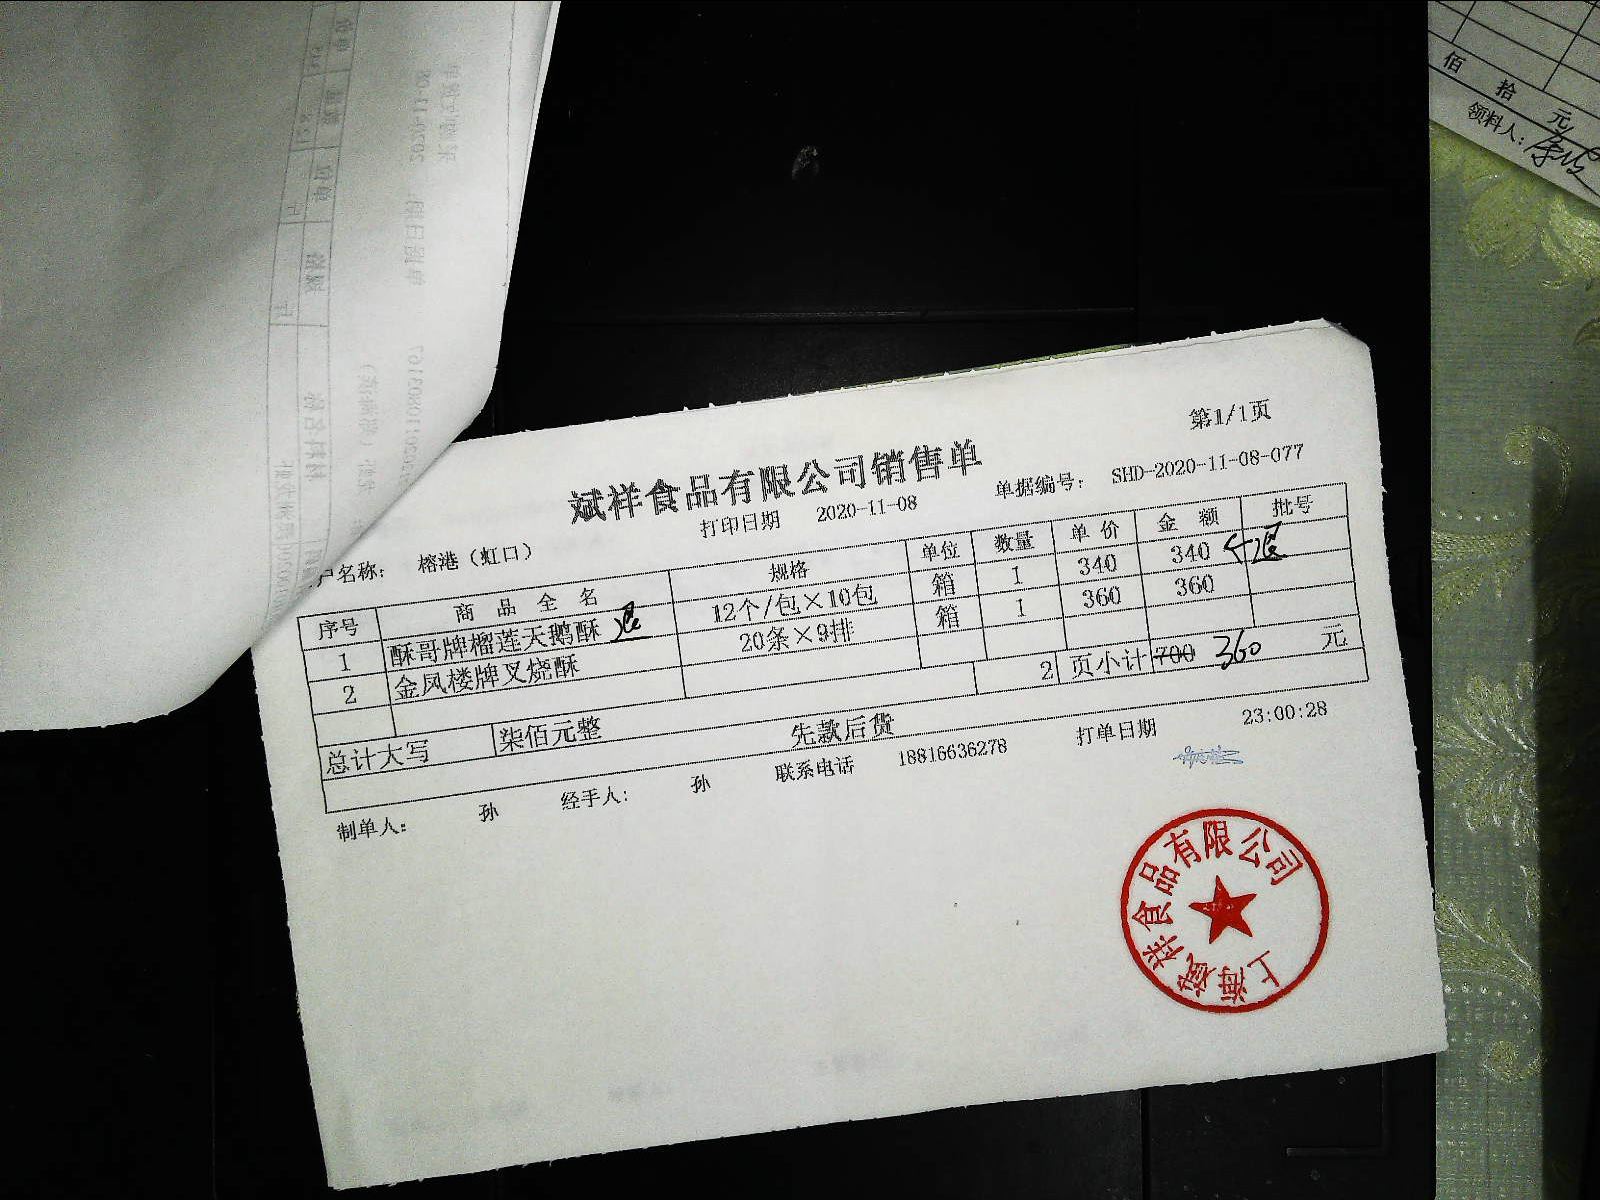 第1/1页
斌祥食品有限公司销售单
打印日期 2020-11-08 单据编号: SHD-2020-11-08-077
户名称: 榕港（虹口）
序号 商品全名 规格 单位 数量 单价 金额 批号
1 酥哥牌榴莲天鹅酥 退 12个/包×10包 箱 1 340 340 退
2 金凤楼牌叉烧酥 20条×9排 箱 1 360 360
2 页小计 700 360 元
总计大写 柒佰元整 先款后货
制单人: 孙 经手人: 孙 联系电话 18816636278 打单日期 23:00:28
上海斌祥食品有限公司
佰 拾 元
领料人: